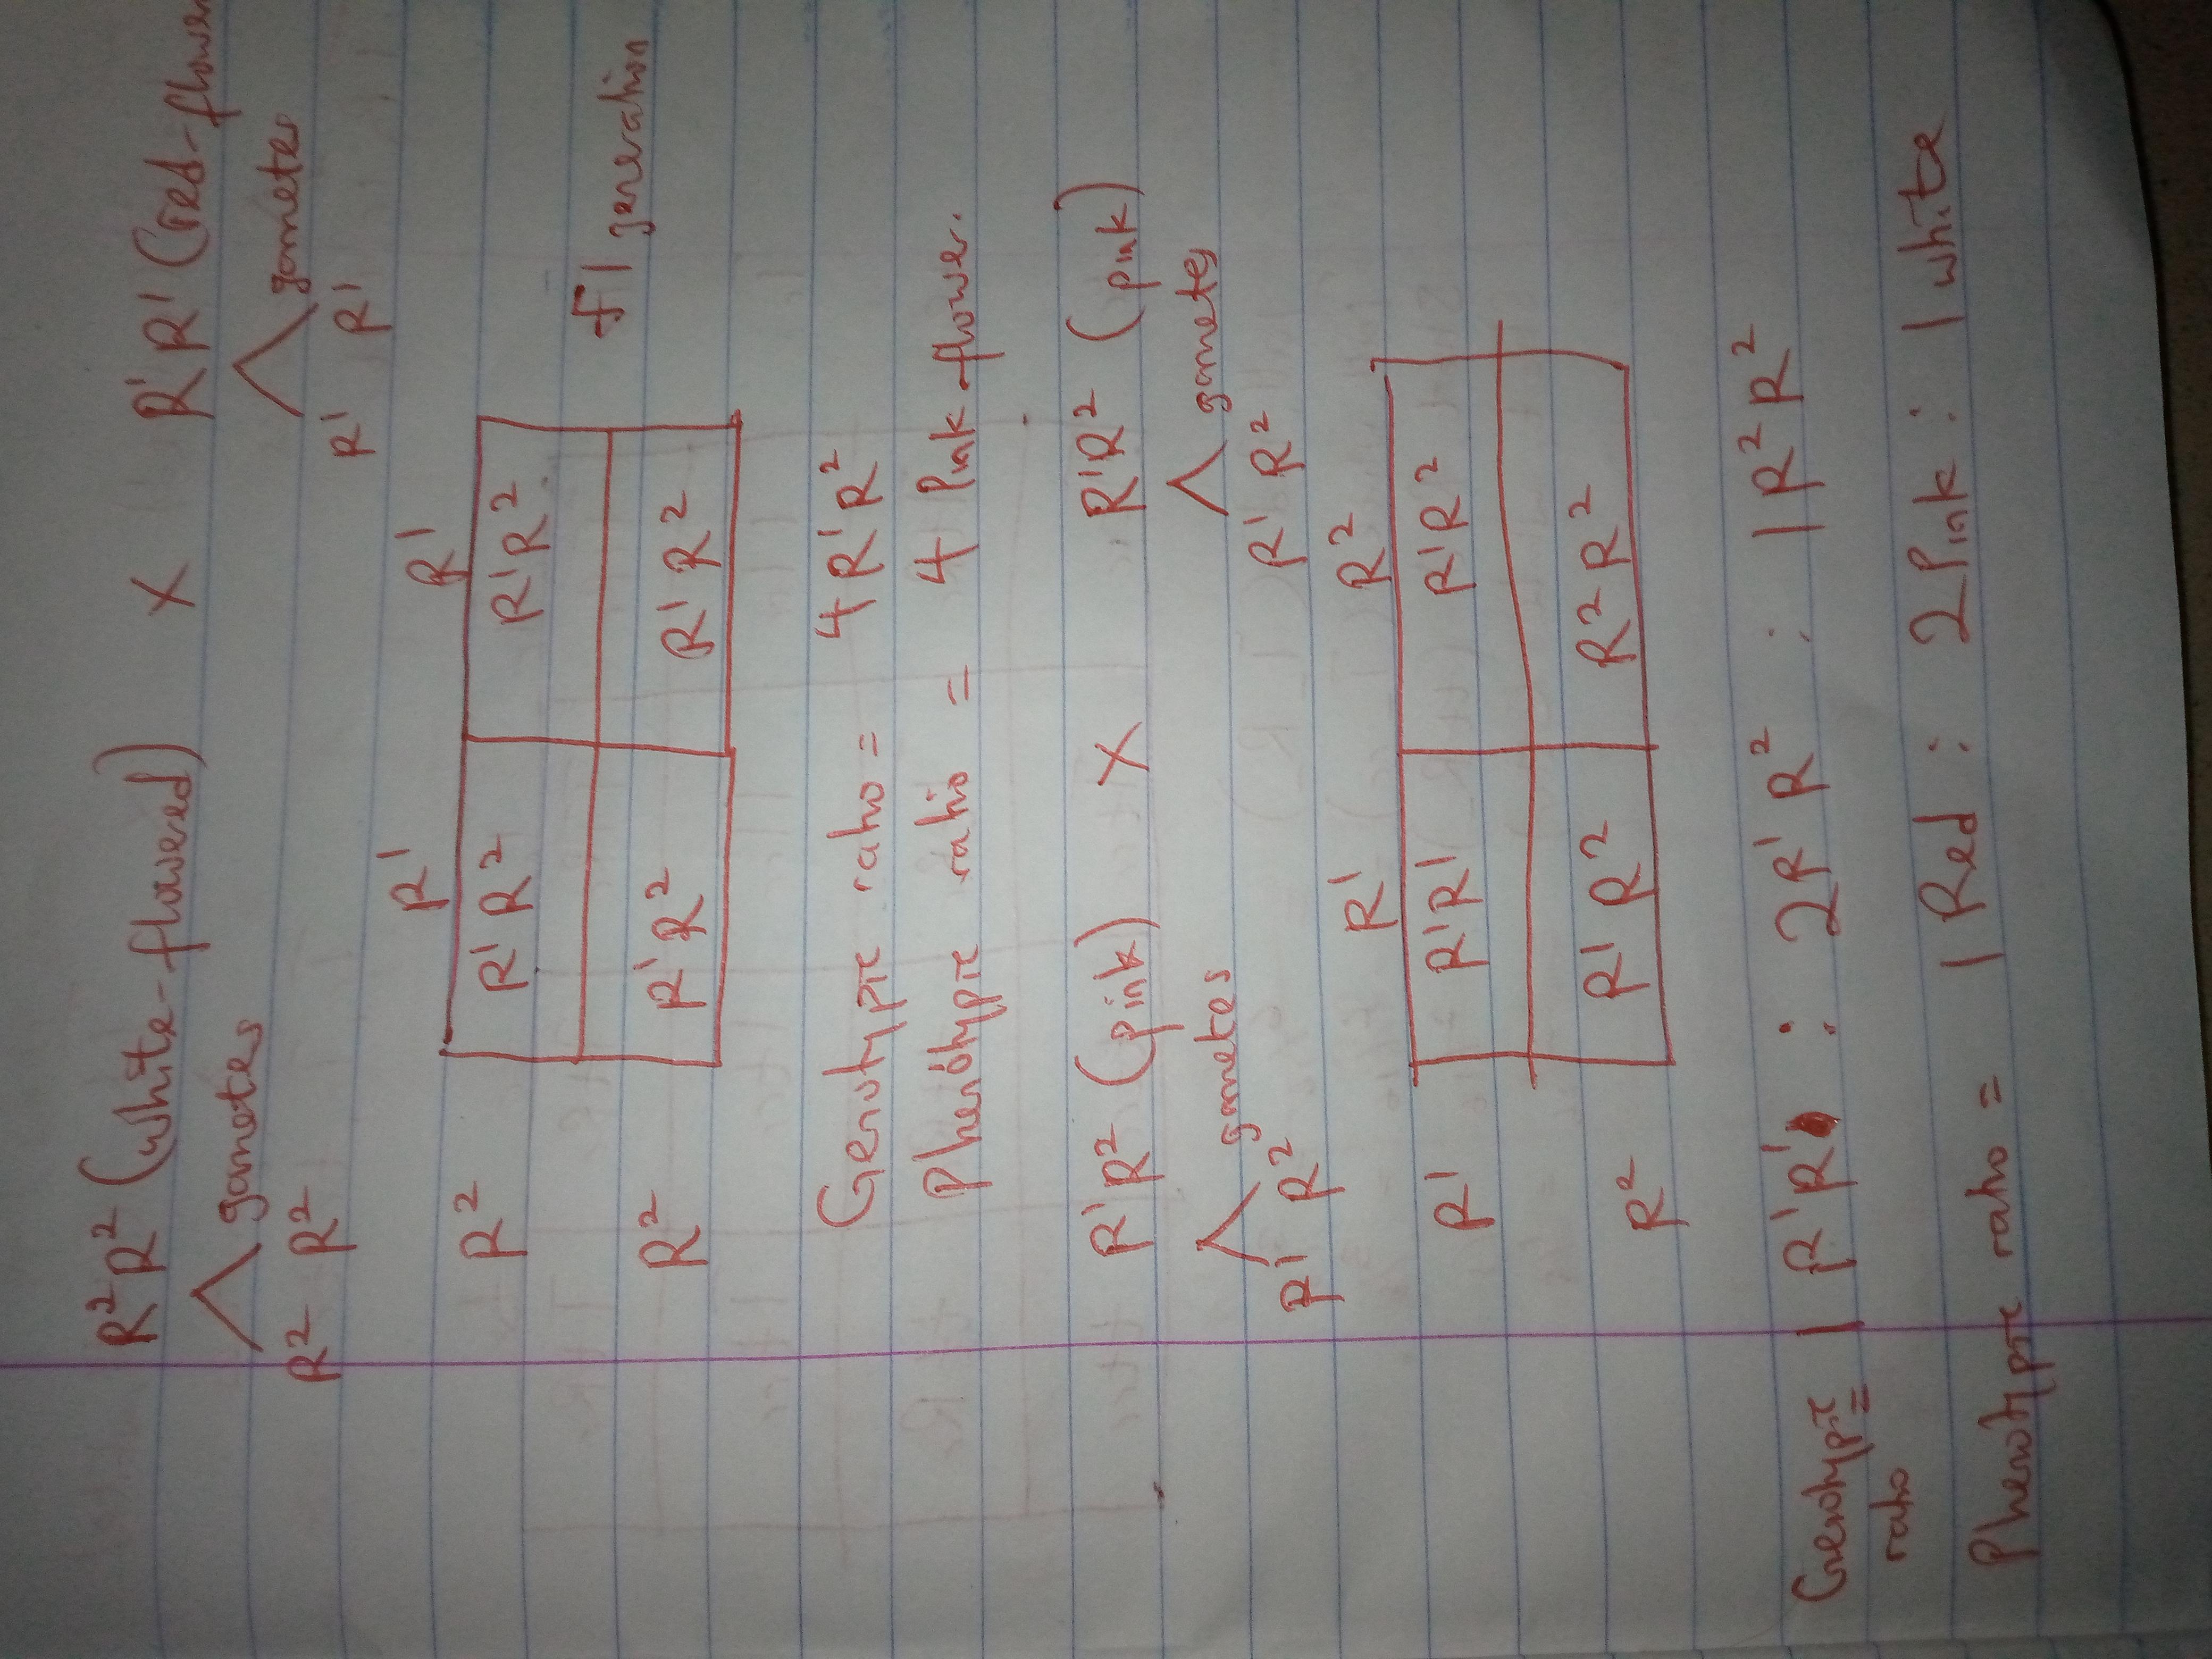 R²R² (white-flowered) X R¹R¹ (red-flower
gametes gametes
R² R² R¹ R¹
R¹ R¹
R² R¹R² R¹R²
F1 generation
R² R¹R² R¹R²
Genotypic ratio = 4R¹R²
Phenotypic ratio = 4 Pink-flower.
R¹R² (pink) X R¹R² (pink)
gametes gametes
R¹ R² R¹ R²
R¹ R²
R¹ R¹R¹ R¹R²
R² R¹R² R²R²
Genotypic = 1R¹R¹ : 2R¹R² : 1R²R²
ratio
Phenotypic ratio = 1Red : 2Pink : 1white